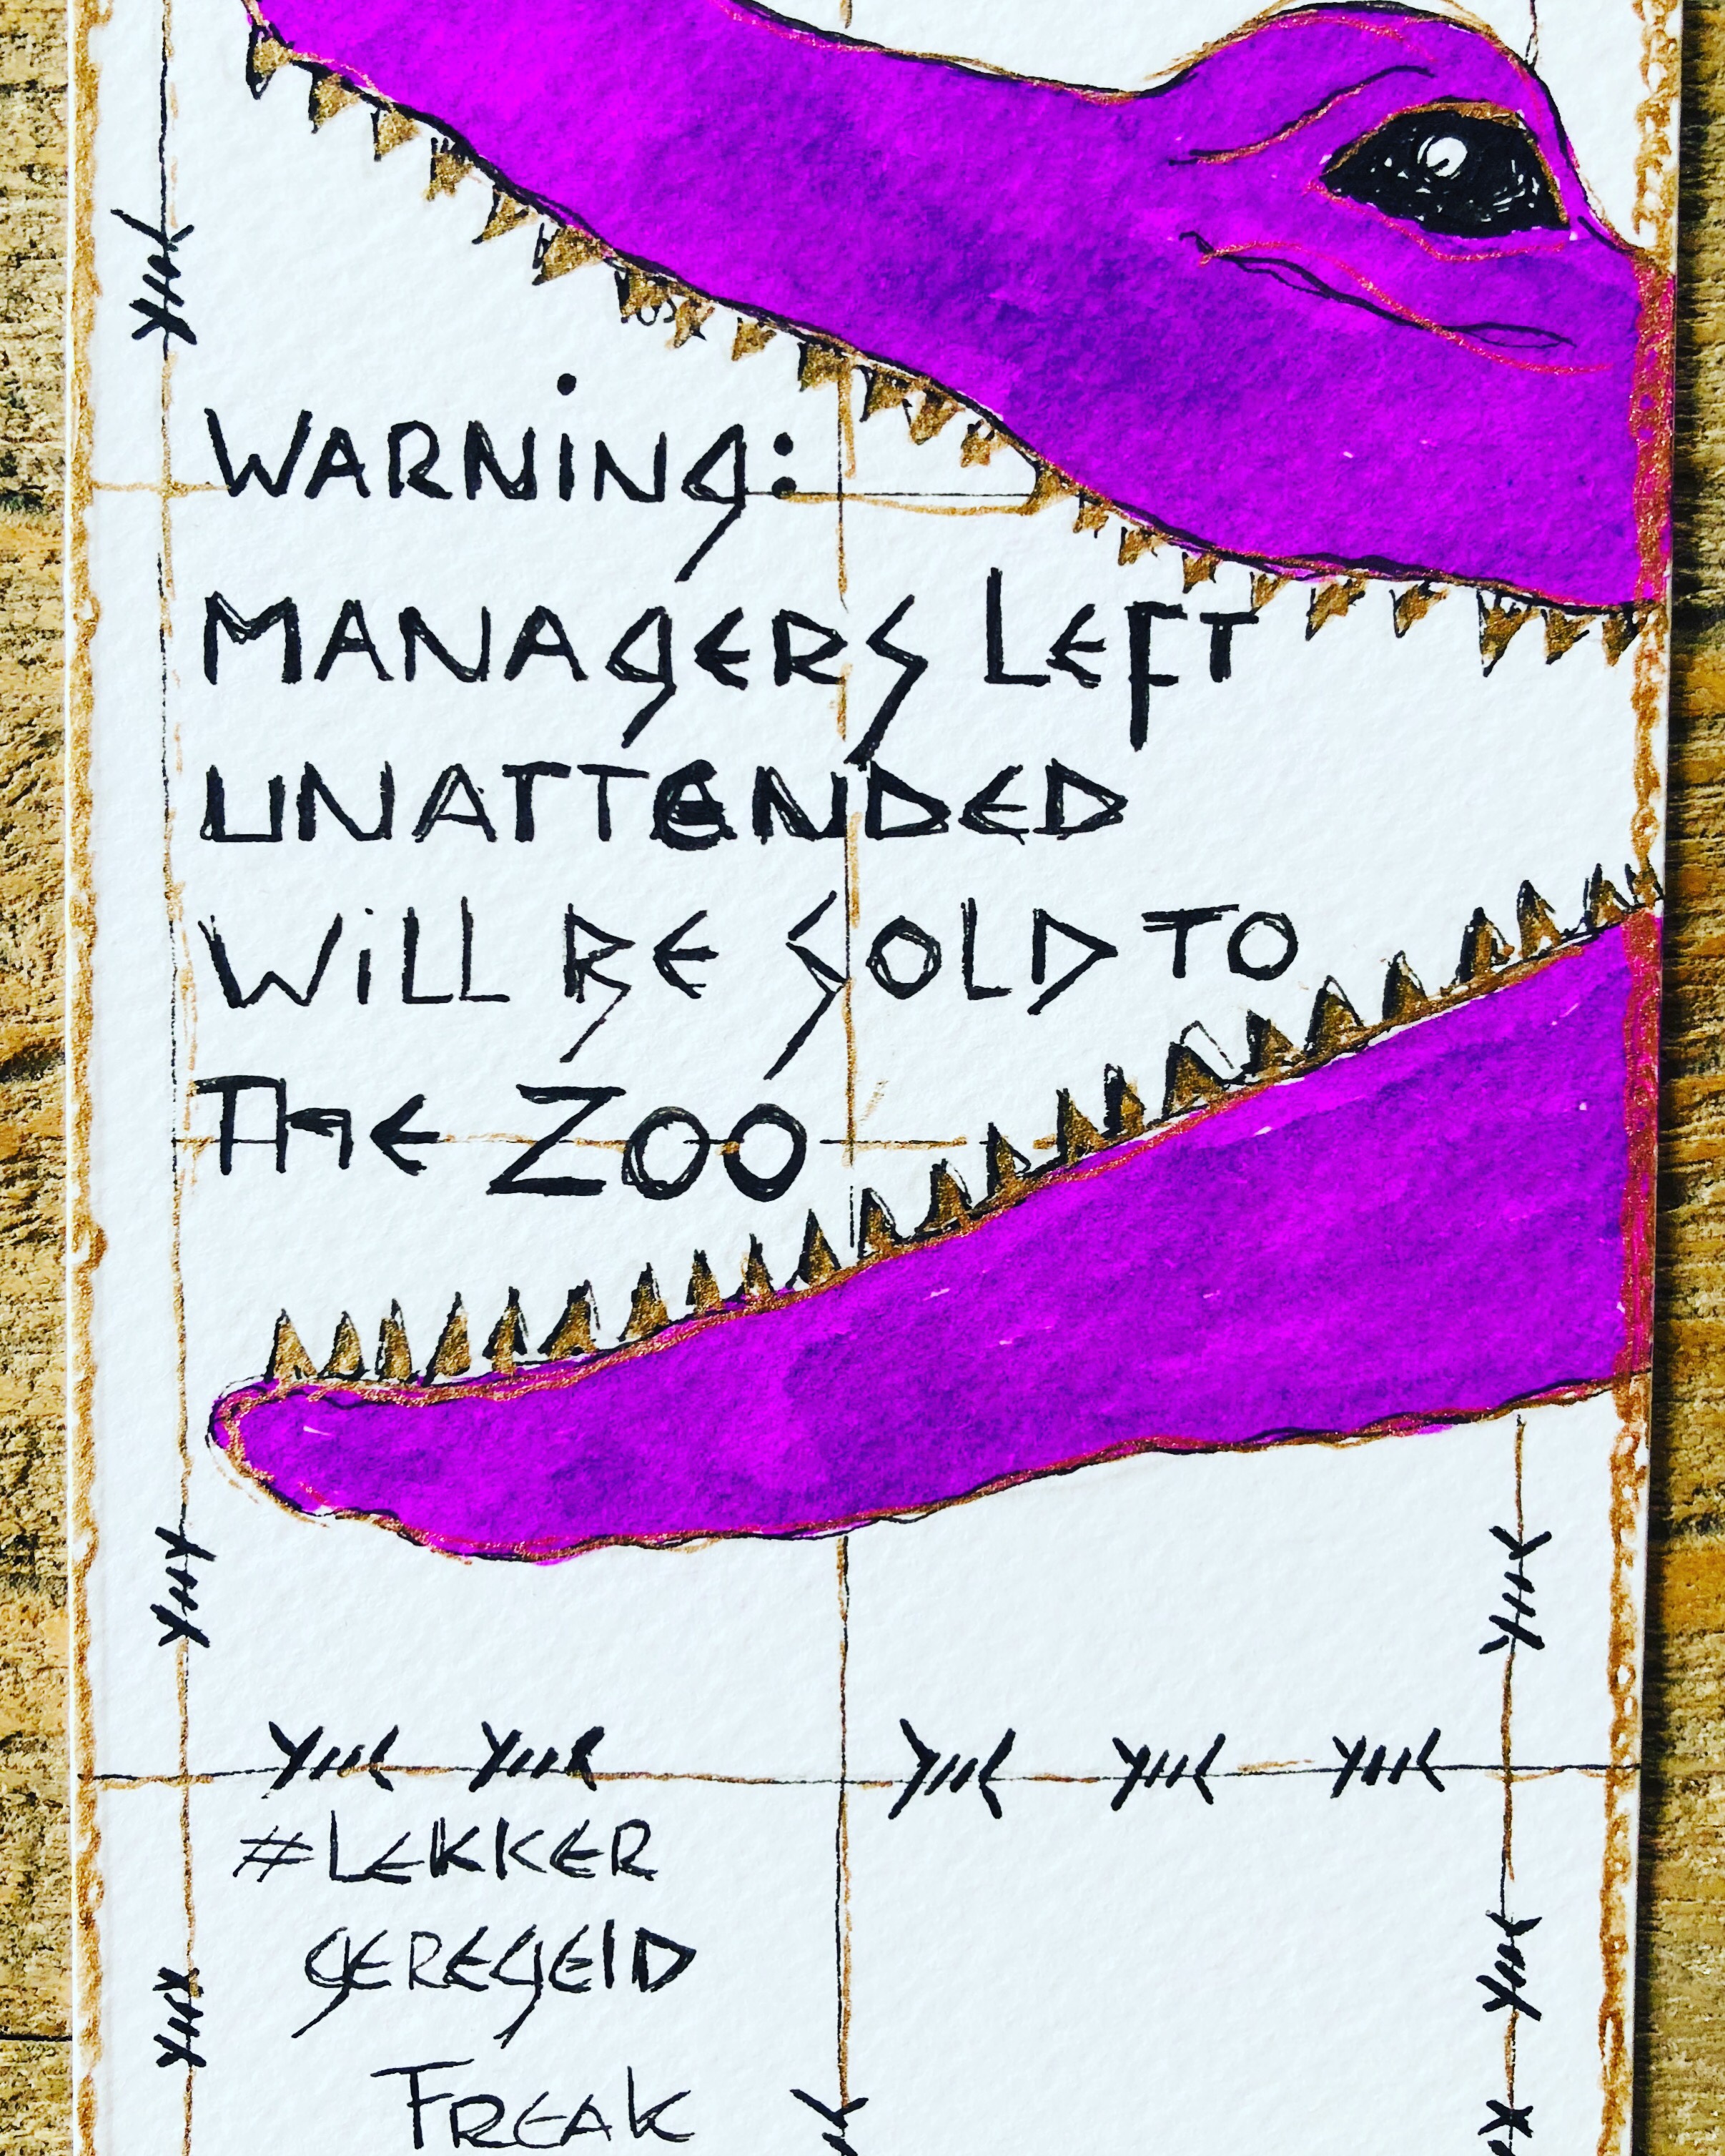 WARNING:
MANAGERS LEFT
UNATTENDED
WILL BE SOLD TO
THE ZOO
#LEKKER
GEREGELD
FREAK